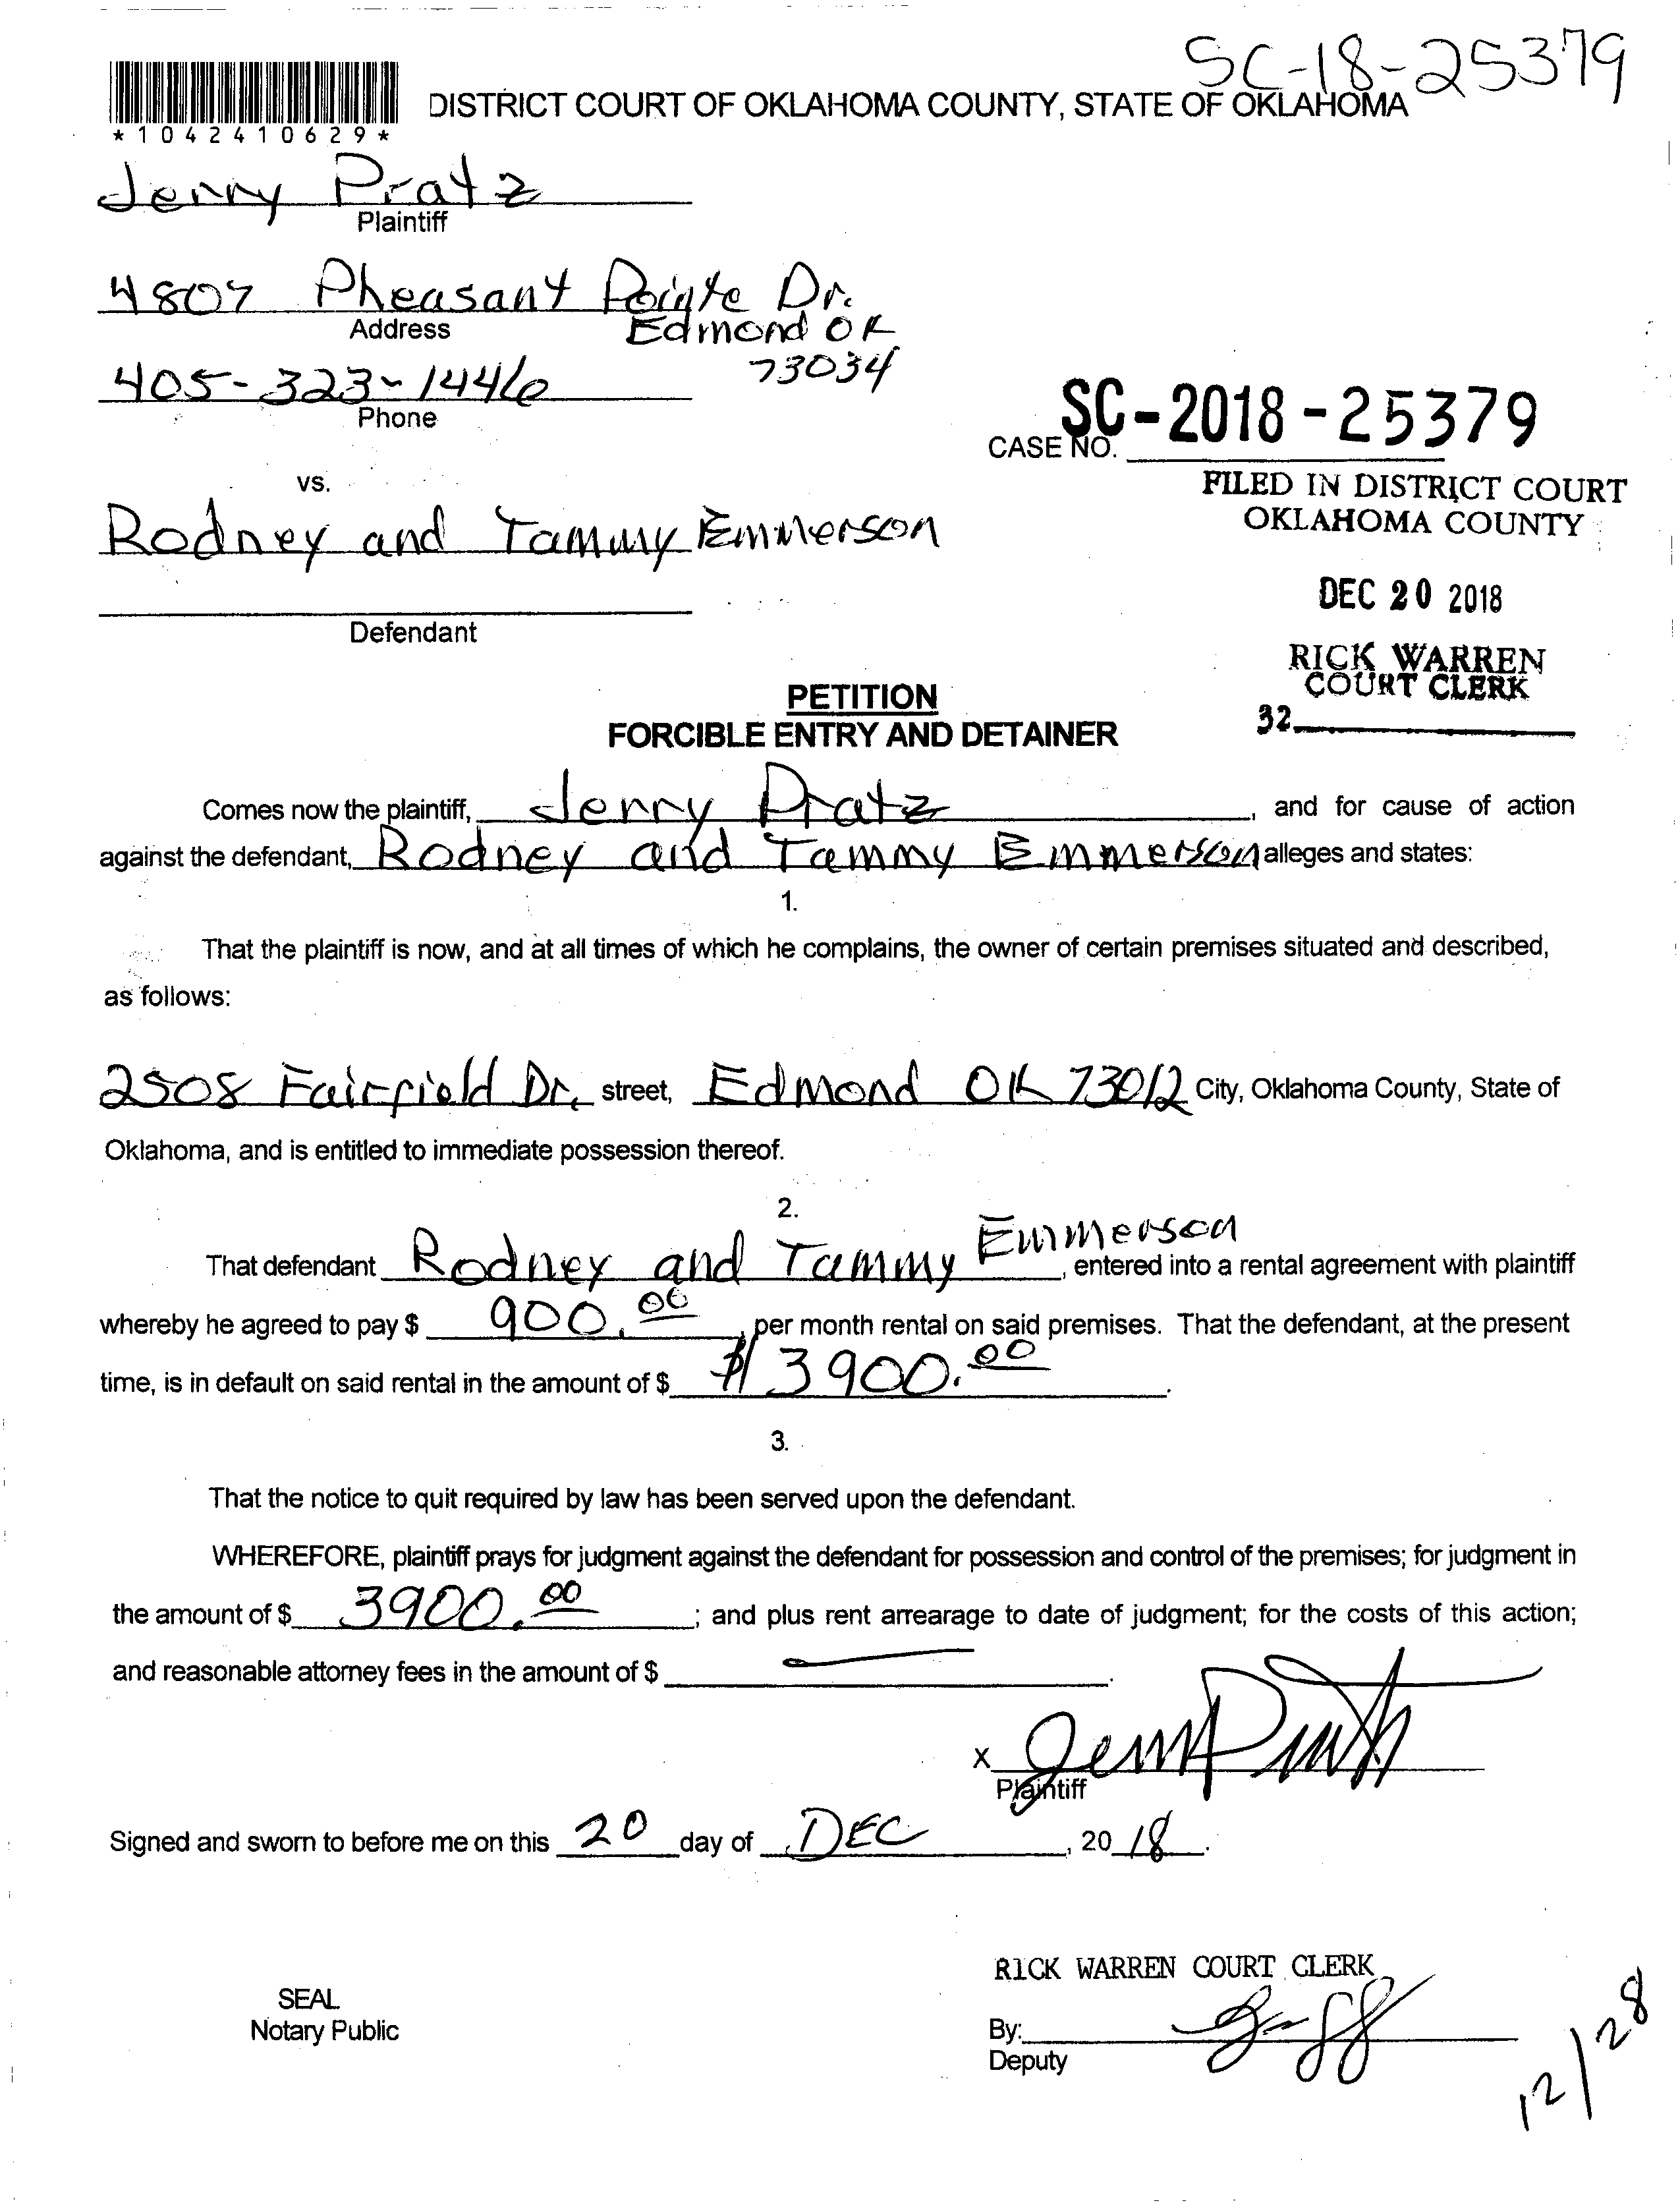 SC-18-25379
*1042410629*
DISTRICT COURT OF OKLAHOMA COUNTY, STATE OF OKLAHOMA
Jerry Pratz
Plaintiff
4807 Pheasant Pointe Dr.
Address
Edmond OK
73034
405-323-1446
Phone
SC-2018-25379
CASE NO.
vs.
FILED IN DISTRICT COURT
OKLAHOMA COUNTY
Rodney and Tammy Emmerson
DEC 20 2018
Defendant
RICK WARREN
COURT CLERK
32
PETITION
FORCIBLE ENTRY AND DETAINER
Comes now the plaintiff, Jerry Pratz, and for cause of action
against the defendant, Rodney and Tammy Emmerson alleges and states:
1.
That the plaintiff is now, and at all times of which he complains, the owner of certain premises situated and described,
as follows:
2508 Fairfield Dr. street, Edmond OK 73012 City, Oklahoma County, State of
Oklahoma, and is entitled to immediate possession thereof.
2.
That defendant Rodney and Tammy Emmerson, entered into a rental agreement with plaintiff
whereby he agreed to pay $ 900.00, per month rental on said premises. That the defendant, at the present
time, is in default on said rental in the amount of $ $3900.00.
3.
That the notice to quit required by law has been served upon the defendant.
WHEREFORE, plaintiff prays for judgment against the defendant for possession and control of the premises; for judgment in
the amount of $ 3900.00; and plus rent arrearage to date of judgment; for the costs of this action;
and reasonable attorney fees in the amount of $.
x
Plaintiff
Signed and sworn to before me on this 20 day of DEC, 20 18.
RICK WARREN COURT CLERK
SEAL
Notary Public
By:
Deputy
12/28